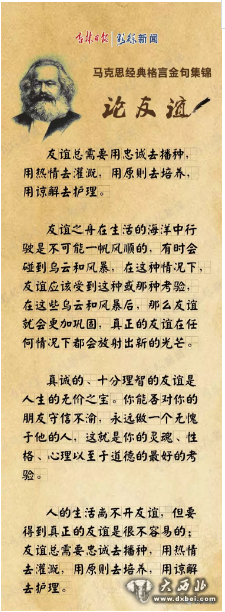 吉林日报 | 彩练新闻
马克思经典格言金句集锦
论友谊
友谊总需要用忠诚去播种，
用热情去灌溉，用原则去培养，
用谅解去护理。
友谊之舟在生活的海洋中行
驶是不可能一帆风顺的，有时会
碰到乌云和风暴，在这种情况下，
友谊应该受到这种或那种考验，
在这些乌云和风暴后，那么友谊
就会更加巩固，真正的友谊在任
何情况下都会放射出新的光芒。
真诚的、十分理智的友谊是
人生的无价之宝。你能否对你的
朋友守信不渝，永远做一个无愧
于他的人，这就是你的灵魂、性
格、心理以至于道德的最好的考
验。
人的生活离不开友谊，但要
得到真正的友谊是很不容易的；
友谊总需要忠诚去播种，用热情
去灌溉，用原则去培养，用谅解
去护理。
大西北
www.dxbei.com